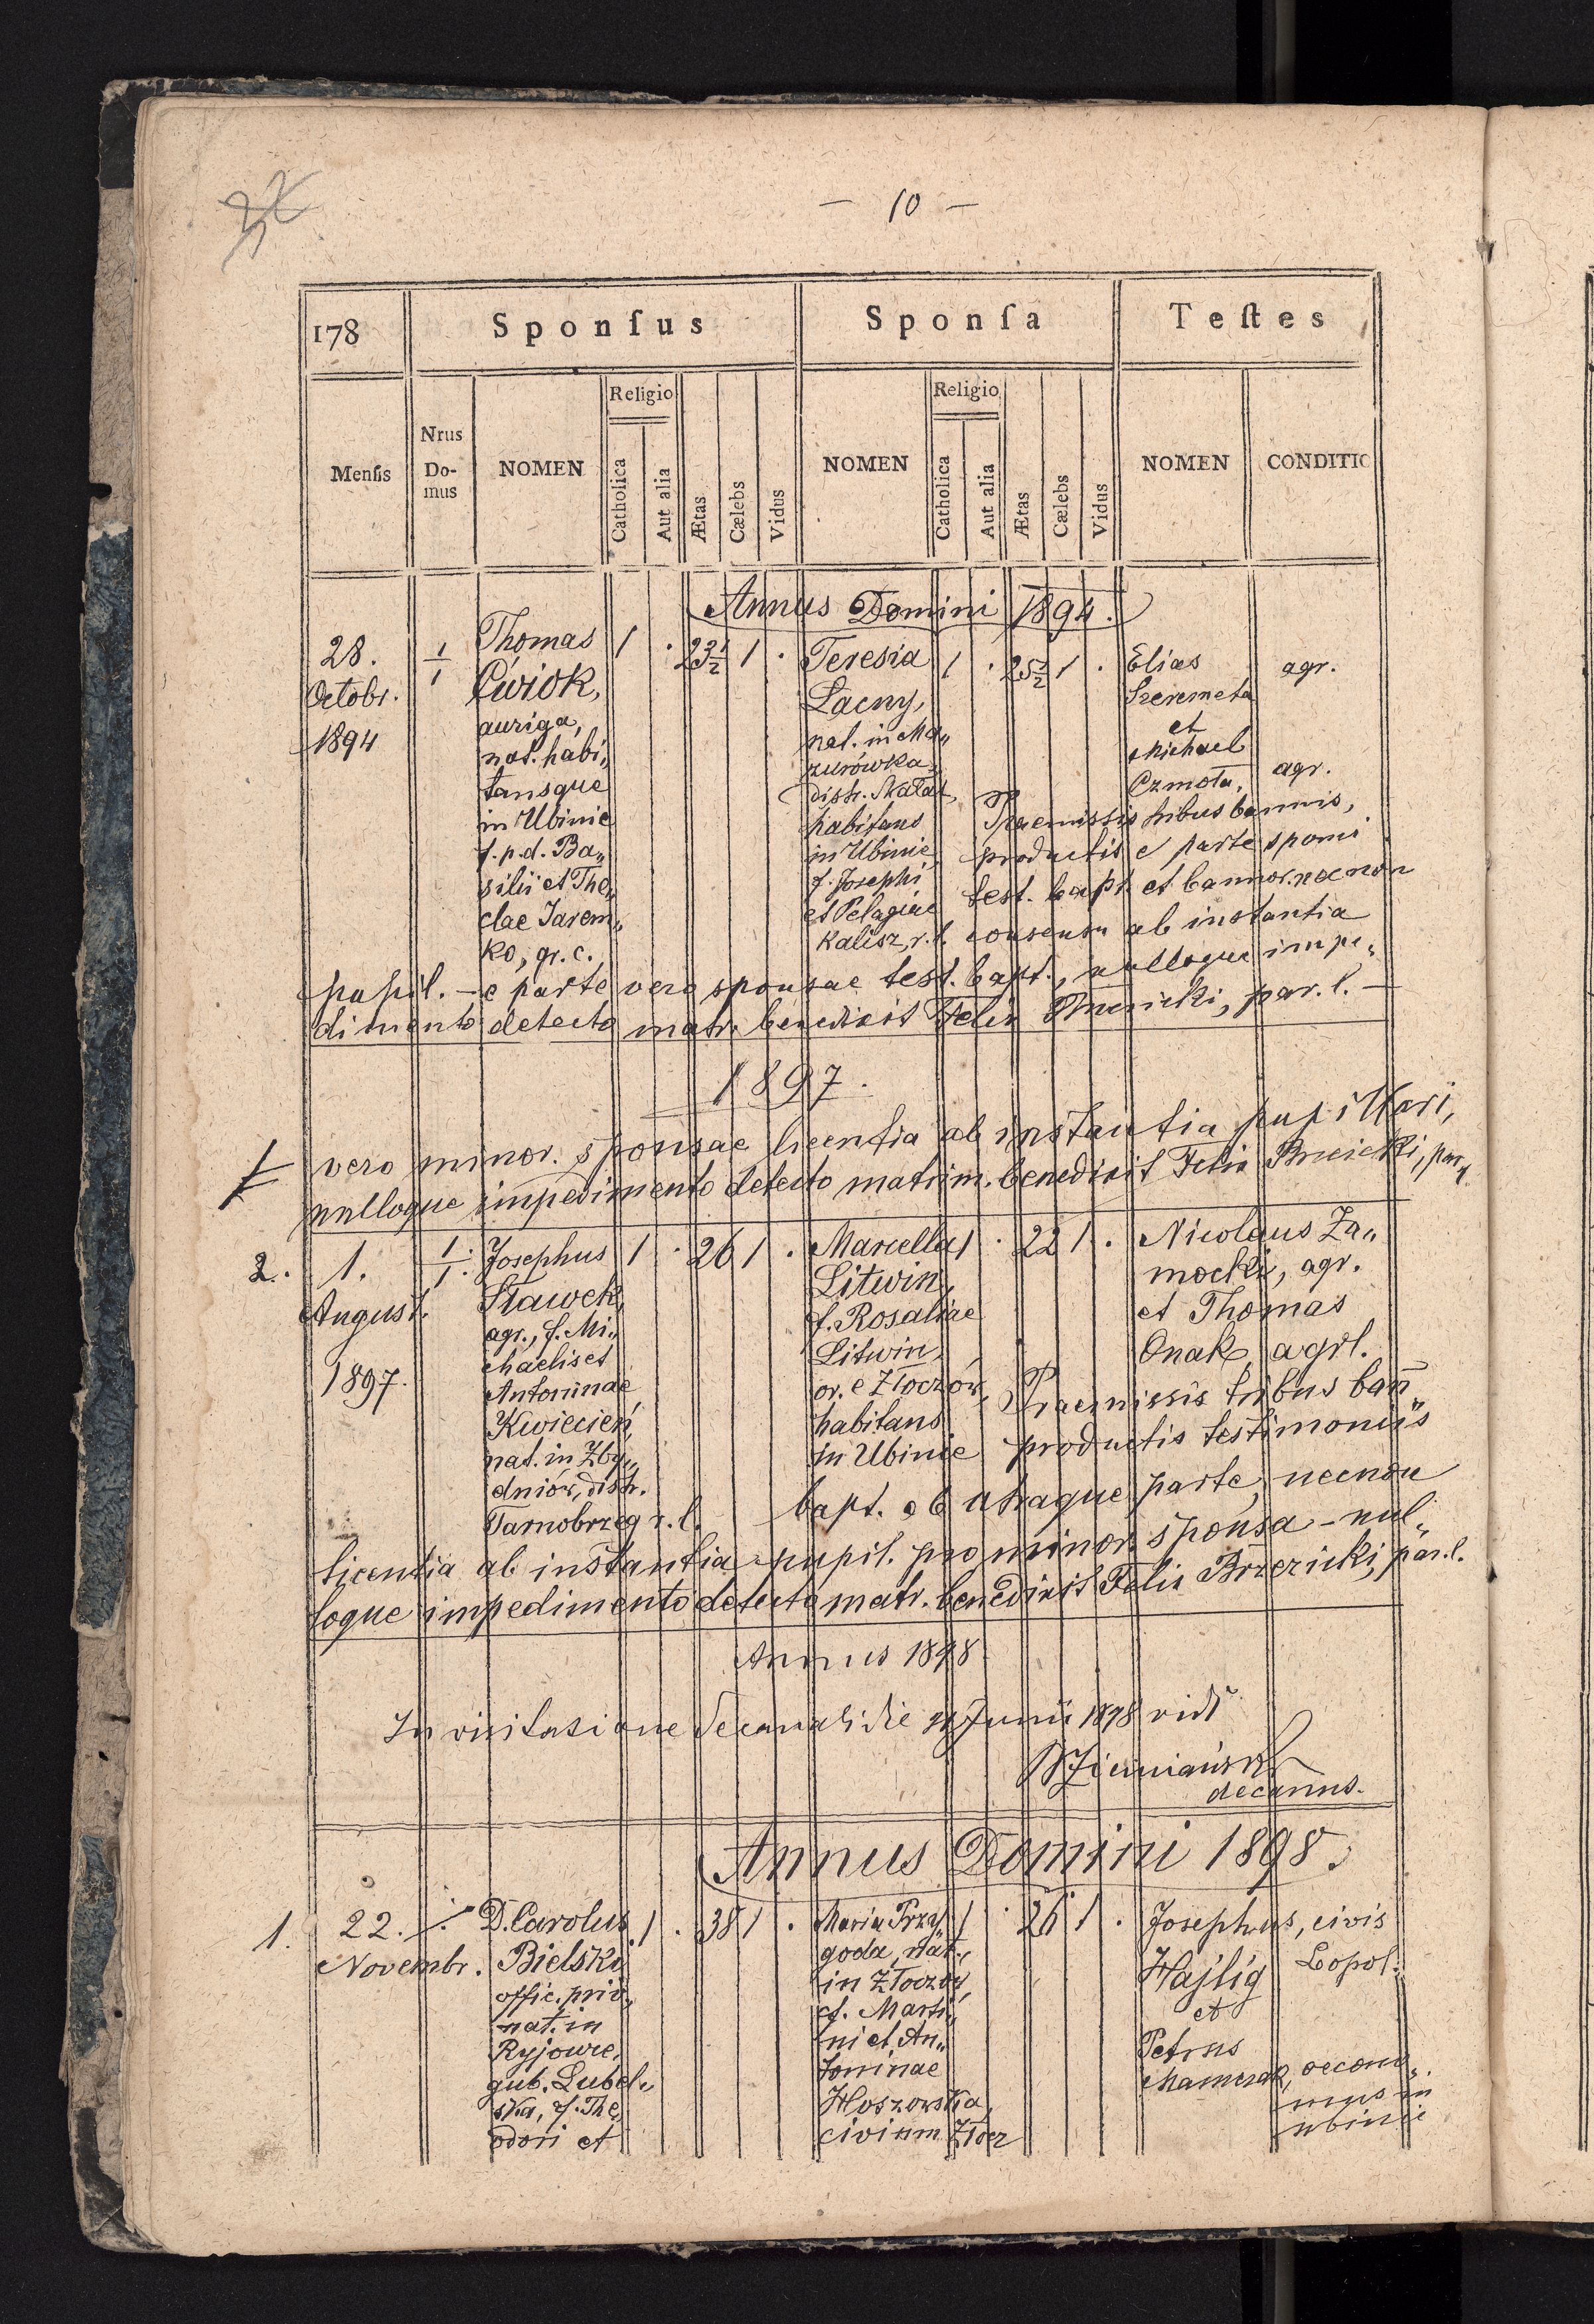 — 10 —
178 Sponſus Sponſa Teſtes
Menſis Nrus Do- mus NOMEN Religio Catholica Aut alia Ætas Cælebs Vidus NOMEN Religio Catholica Aut alia Ætas Cælebs Vidus NOMEN CONDITIO
Annus Domini 1894.
28.
Octobr.
1894
1/1
Thomas
Ćwiok,
auriga,
nat. habi„
tansque
in Ubinie
f. p. d. Ba„
silii et The„
clae Jarem„
ko, gr. c.
1 · 23 1/2 1 ·
Teresia
Łacny,
nat. in Ma„
zurówka
distr.
habitans
in Ubinie,
f. Josephi
et Pelagiae
Kalisz, r. l.
1 · 25 1/2 1 ·
Elias
Szeremeta
et
Michael
Czmoła,
agr.
agr.
Praemissis tribus bannis,
productis e parte sponsi
test. bapt. et bannor. nec non
consensu ab instantia
pupil. – e parte vero sponsae test. bapt., nulloque impe„
dimento detecto matr. benedixit Felix par. l. —
1897.
vero minor. sponsae licentia ab instantia pupillari,
nulloque impedimento detecto matrim. benedixit Felix
2.
1.
August.
1897.
1/1.
Josephus
Sławek,
agr., f. Mi„
chaelis et
Antoninae
Kwiecień,
nat. in Zby„
dniów, distr.
Tarnobrzeg r. l.
1 · 26 1 ·
Marcella
Litwin,
f. Rosaliae
Litwin,
or. e Złoczów,
habitans
in Ubinie
1 · 22 1 ·
Nicolaus Za„
mocki, agr.
et Thomas
Onak, agrl.
Praemissis tribus bañ„
productis testimoniis
bapt. ab utraque parte, necnon
licentia ab instantia pupil. pro minor. sponsa – nul„
loque impedimento detecto matr. benedixit Felix Brzezicki, par. l.
Annus 1898
In visitatione decanali die Junii 1898 vidi
decanus.
Annus Domini 1898.
1.
22.
Novembr.
D. Carolus
Bielski
offic. priv.,
nat. in
Ryjowie,
gub. Lubel„
ska, f. The„
odori et
1 · 38 1 ·
Maria Przy„
goda, nat.
in Złoczów,
f. Marti„
ni et An„
toninae
Hoszowska,
civium Złocz
1 · 26 1 ·
Josephus, civis
Hajlig Lopol.
et
Petrus
Mamczak, oecono„
mus in
Ubinie